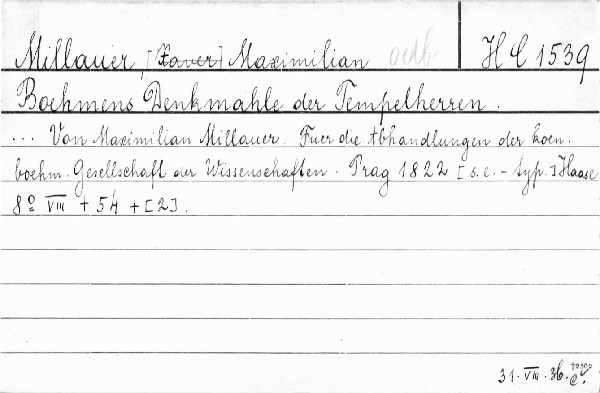 Millauer, [Xaver] Maximilian odb HC 1539
Boehmens Denkmahle der Tempelherren.
... Von Maximilian Millauer. Fuer die Abhandlungen der koen.
boehm. Gesellschaft der Wissenschaften. Prag 1822 [s.e. - typ.] Haase
8° VIII + 54 + [2].
31. VIII. 36.